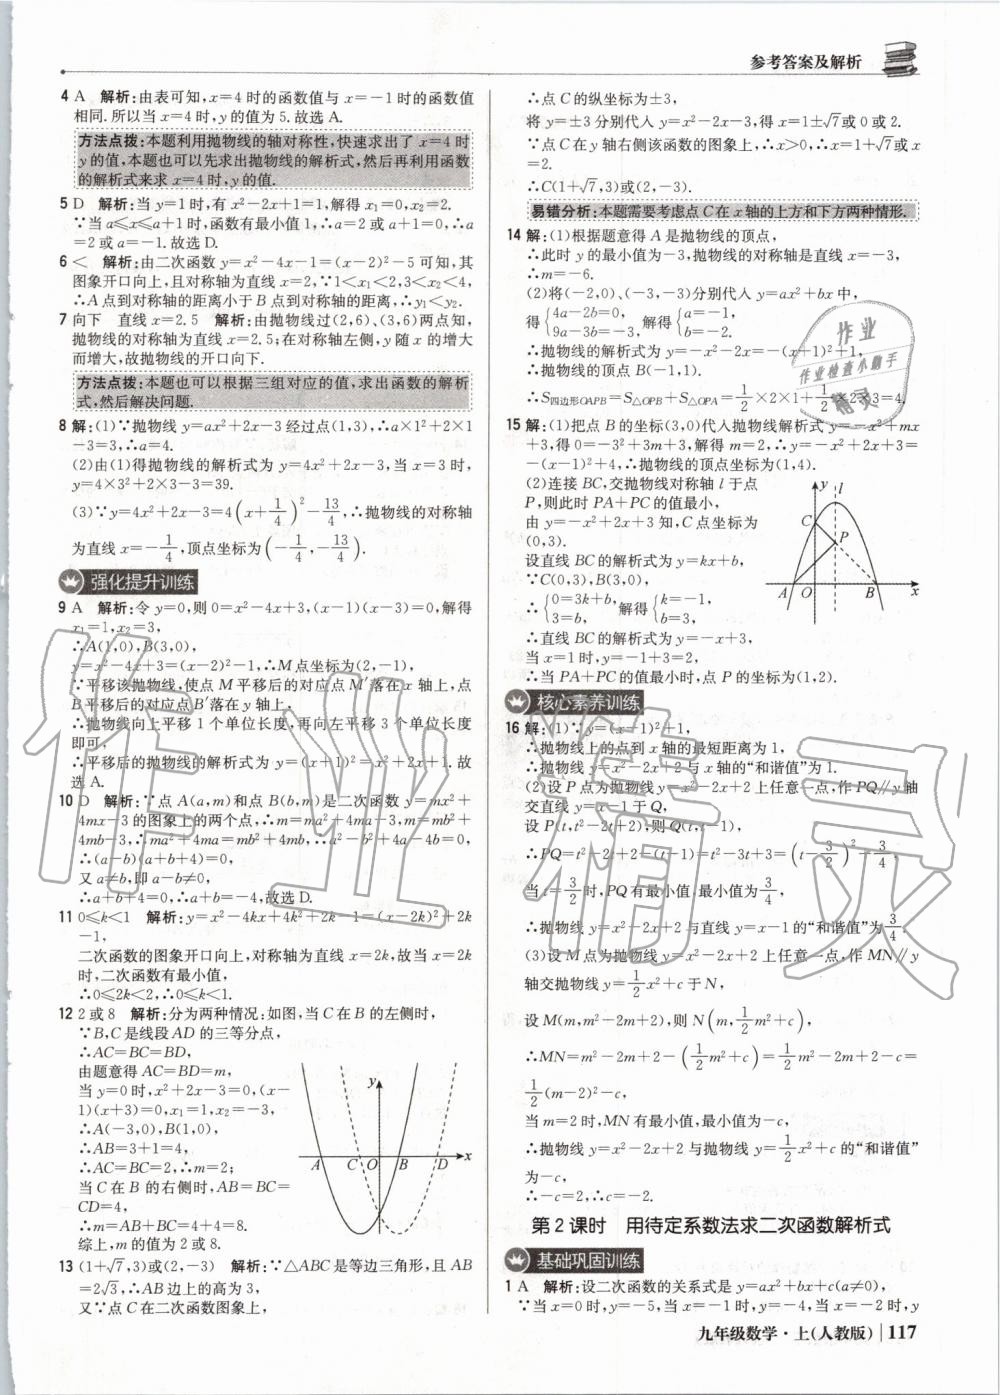 参考答案及解析
4 A 解析:由表可知,x=4 时的函数值与 x=-1 时的函数值
相同.所以当 x=4 时,y 的值为 5.故选 A.
方法点拨:本题利用抛物线的轴对称性,快速求出了 x=4 时
y 的值,本题也可以先求出抛物线的解析式,然后再利用函数
的解析式来求 x=4 时,y 的值.
5 D 解析:当 y=1 时,有 x²-2x+1=1,解得 x₁=0,x₂=2.
∵当 a≤x≤a+1 时,函数有最小值 1,∴a=2 或 a+1=0,∴a
=2 或 a=-1.故选 D.
6 < 解析:由二次函数 y=x²-4x-1=(x-2)²-5 可知,其
图象开口向上,且对称轴为直线 x=2,∵1<x₁<2,3<x₂<4,
∴A 点到对称轴的距离小于 B 点到对称轴的距离,∴y₁<y₂.
7 向下 直线 x=2.5 解析:由抛物线过(2,6)、(3,6)两点知,
抛物线的对称轴为直线 x=2.5;在对称轴左侧,y 随 x 的增大
而增大,故抛物线的开口向下.
方法点拨:本题也可以根据三组对应的值,求出函数的解析
式,然后解决问题.
8 解:(1)∵抛物线 y=ax²+2x-3 经过点(1,3),∴a×1²+2×1
-3=3,∴a=4.
(2)由(1)得抛物线的解析式为 y=4x²+2x-3,当 x=3 时,
y=4×3²+2×3-3=39.
(3)∵y=4x²+2x-3=4(x+1/4)²-13/4,∴抛物线的对称轴
为直线 x=-1/4,顶点坐标为(-1/4,-13/4).
强化提升训练
9 A 解析:令 y=0,则 0=x²-4x+3,(x-1)(x-3)=0,解得
x₁=1,x₂=3,
∴A(1,0),B(3,0),
y=x²-4x+3=(x-2)²-1,∴M 点坐标为(2,-1),
∵平移该抛物线,使点 M 平移后的对应点 M′落在 x 轴上,点
B 平移后的对应点 B′落在 y 轴上,
∴抛物线向上平移 1 个单位长度,再向左平移 3 个单位长度
即可,
∴平移后的抛物线的解析式为 y=(x+1)²=x²+2x+1.故
选 A.
10 D 解析:∵点 A(a,m)和点 B(b,m)是二次函数 y=mx²+
4mx-3 的图象上的两个点,∴m=ma²+4ma-3,m=mb²+
4mb-3,∴ma²+4ma=mb²+4mb,∴a²-b²+4a-4b=0,
∴(a-b)(a+b+4)=0,
又 a≠b,即 a-b≠0,
∴a+b+4=0,∴a+b=-4,故选 D.
11 0≤k<1 解析:y=x²-4kx+4k²+2k-1=(x-2k)²+2k
-1,
二次函数的图象开口向上,对称轴为直线 x=2k,故当 x=2k
时,二次函数有最小值,
∴0≤2k<2,∴0≤k<1.
12 2 或 8 解析:分为两种情况:如图,当 C 在 B 的左侧时,
∵B,C 是线段 AD 的三等分点,
∴AC=BC=BD,
由题意得 AC=BD=m,
当 y=0 时,x²+2x-3=0,(x-
1)(x+3)=0,x₁=1,x₂=-3,
∴A(-3,0),B(1,0),
∴AB=3+1=4,
∴AC=BC=2,∴m=2;
当 C 在 B 的右侧时,AB=BC=
CD=4,
∴m=AB+BC=4+4=8.
综上,m 的值为 2 或 8.
y
A C O B D x
13 (1+√7,3)或(2,-3) 解析:∵△ABC 是等边三角形,且 AB
=2√3,∴AB 边上的高为 3,
又∵点 C 在二次函数图象上,
∴点 C 的纵坐标为±3,
将 y=±3 分别代入 y=x²-2x-3,得 x=1±√7或 0 或 2.
∵点 C 在 y 轴右侧该函数的图象上,∴x>0,∴x=1+√7或 x
=2.
∴C(1+√7,3)或(2,-3).
易错分析:本题需要考虑点 C 在 x 轴的上方和下方两种情形.
14 解:(1)根据题意得 A 是抛物线的顶点,
∴此时 y 的最小值为-3,抛物线的对称轴是直线 x=-3,
∴m=-6.
(2)将(-2,0)、(-3,-3)分别代入 y=ax²+bx 中,
得{4a-2b=0, 9a-3b=-3, 解得{a=-1, b=-2.
∴抛物线的解析式为 y=-x²-2x=-(x+1)²+1,
∴抛物线的顶点 B(-1,1).
∴S四边形OAPB=S△OPB+S△OPA=1/2×2×1+1/2×2×3=4.
15 解:(1)把点 B 的坐标(3,0)代入抛物线解析式 y=-x²+mx
+3,得 0=-3²+3m+3,解得 m=2,∴y=-x²+2x+3=
-(x-1)²+4,∴抛物线的顶点坐标为(1,4).
(2)连接 BC,交抛物线对称轴 l 于点
P,则此时 PA+PC 的值最小,
由 y=-x²+2x+3 知,C 点坐标为
(0,3).
设直线 BC 的解析式为 y=kx+b,
∵C(0,3),B(3,0),
∴{0=3k+b, 3=b, 解得{k=-1, b=3,
∴直线 BC 的解析式为 y=-x+3,
当 x=1 时,y=-1+3=2,
∴当 PA+PC 的值最小时,点 P 的坐标为(1,2).
y l
C
P
A O B x
核心素养训练
16 解:(1)∵y=(x-1)²+1,
∴抛物线上的点到 x 轴的最短距离为 1,
∴抛物线 y=x²-2x+2 与 x 轴的“和谐值”为 1.
(2)设 P 点为抛物线 y=x²-2x+2 上任意一点,作 PQ∥y 轴
交直线 y=x-1 于 Q,
设 P(t,t²-2t+2),则 Q(t,t-1),
∴PQ=t²-2t+2-(t-1)=t²-3t+3=(t-3/2)²+3/4,
当 t=3/2时,PQ 有最小值,最小值为3/4,
∴抛物线 y=x²-2x+2 与直线 y=x-1 的“和谐值”为3/4.
(3)设 M 点为抛物线 y=x²-2x+2 上任意一点,作 MN∥y
轴交抛物线 y=1/2x²+c 于 N,
设 M(m,m²-2m+2),则 N(m,1/2m²+c),
∴MN=m²-2m+2-(1/2m²+c)=1/2m²-2m+2-c=
1/2(m-2)²-c,
当 m=2 时,MN 有最小值,最小值为-c,
∴抛物线 y=x²-2x+2 与抛物线 y=1/2x²+c 的“和谐值”
为-c,
∴-c=2,∴c=-2.
第 2 课时 用待定系数法求二次函数解析式
基础巩固训练
1 A 解析:设二次函数的关系式是 y=ax²+bx+c(a≠0),
∵当 x=0 时,y=-5,当 x=-1 时,y=-4,当 x=-2 时,y
九年级数学·上(人教版) 117
作业精灵
作业
作业检查小助手
精灵